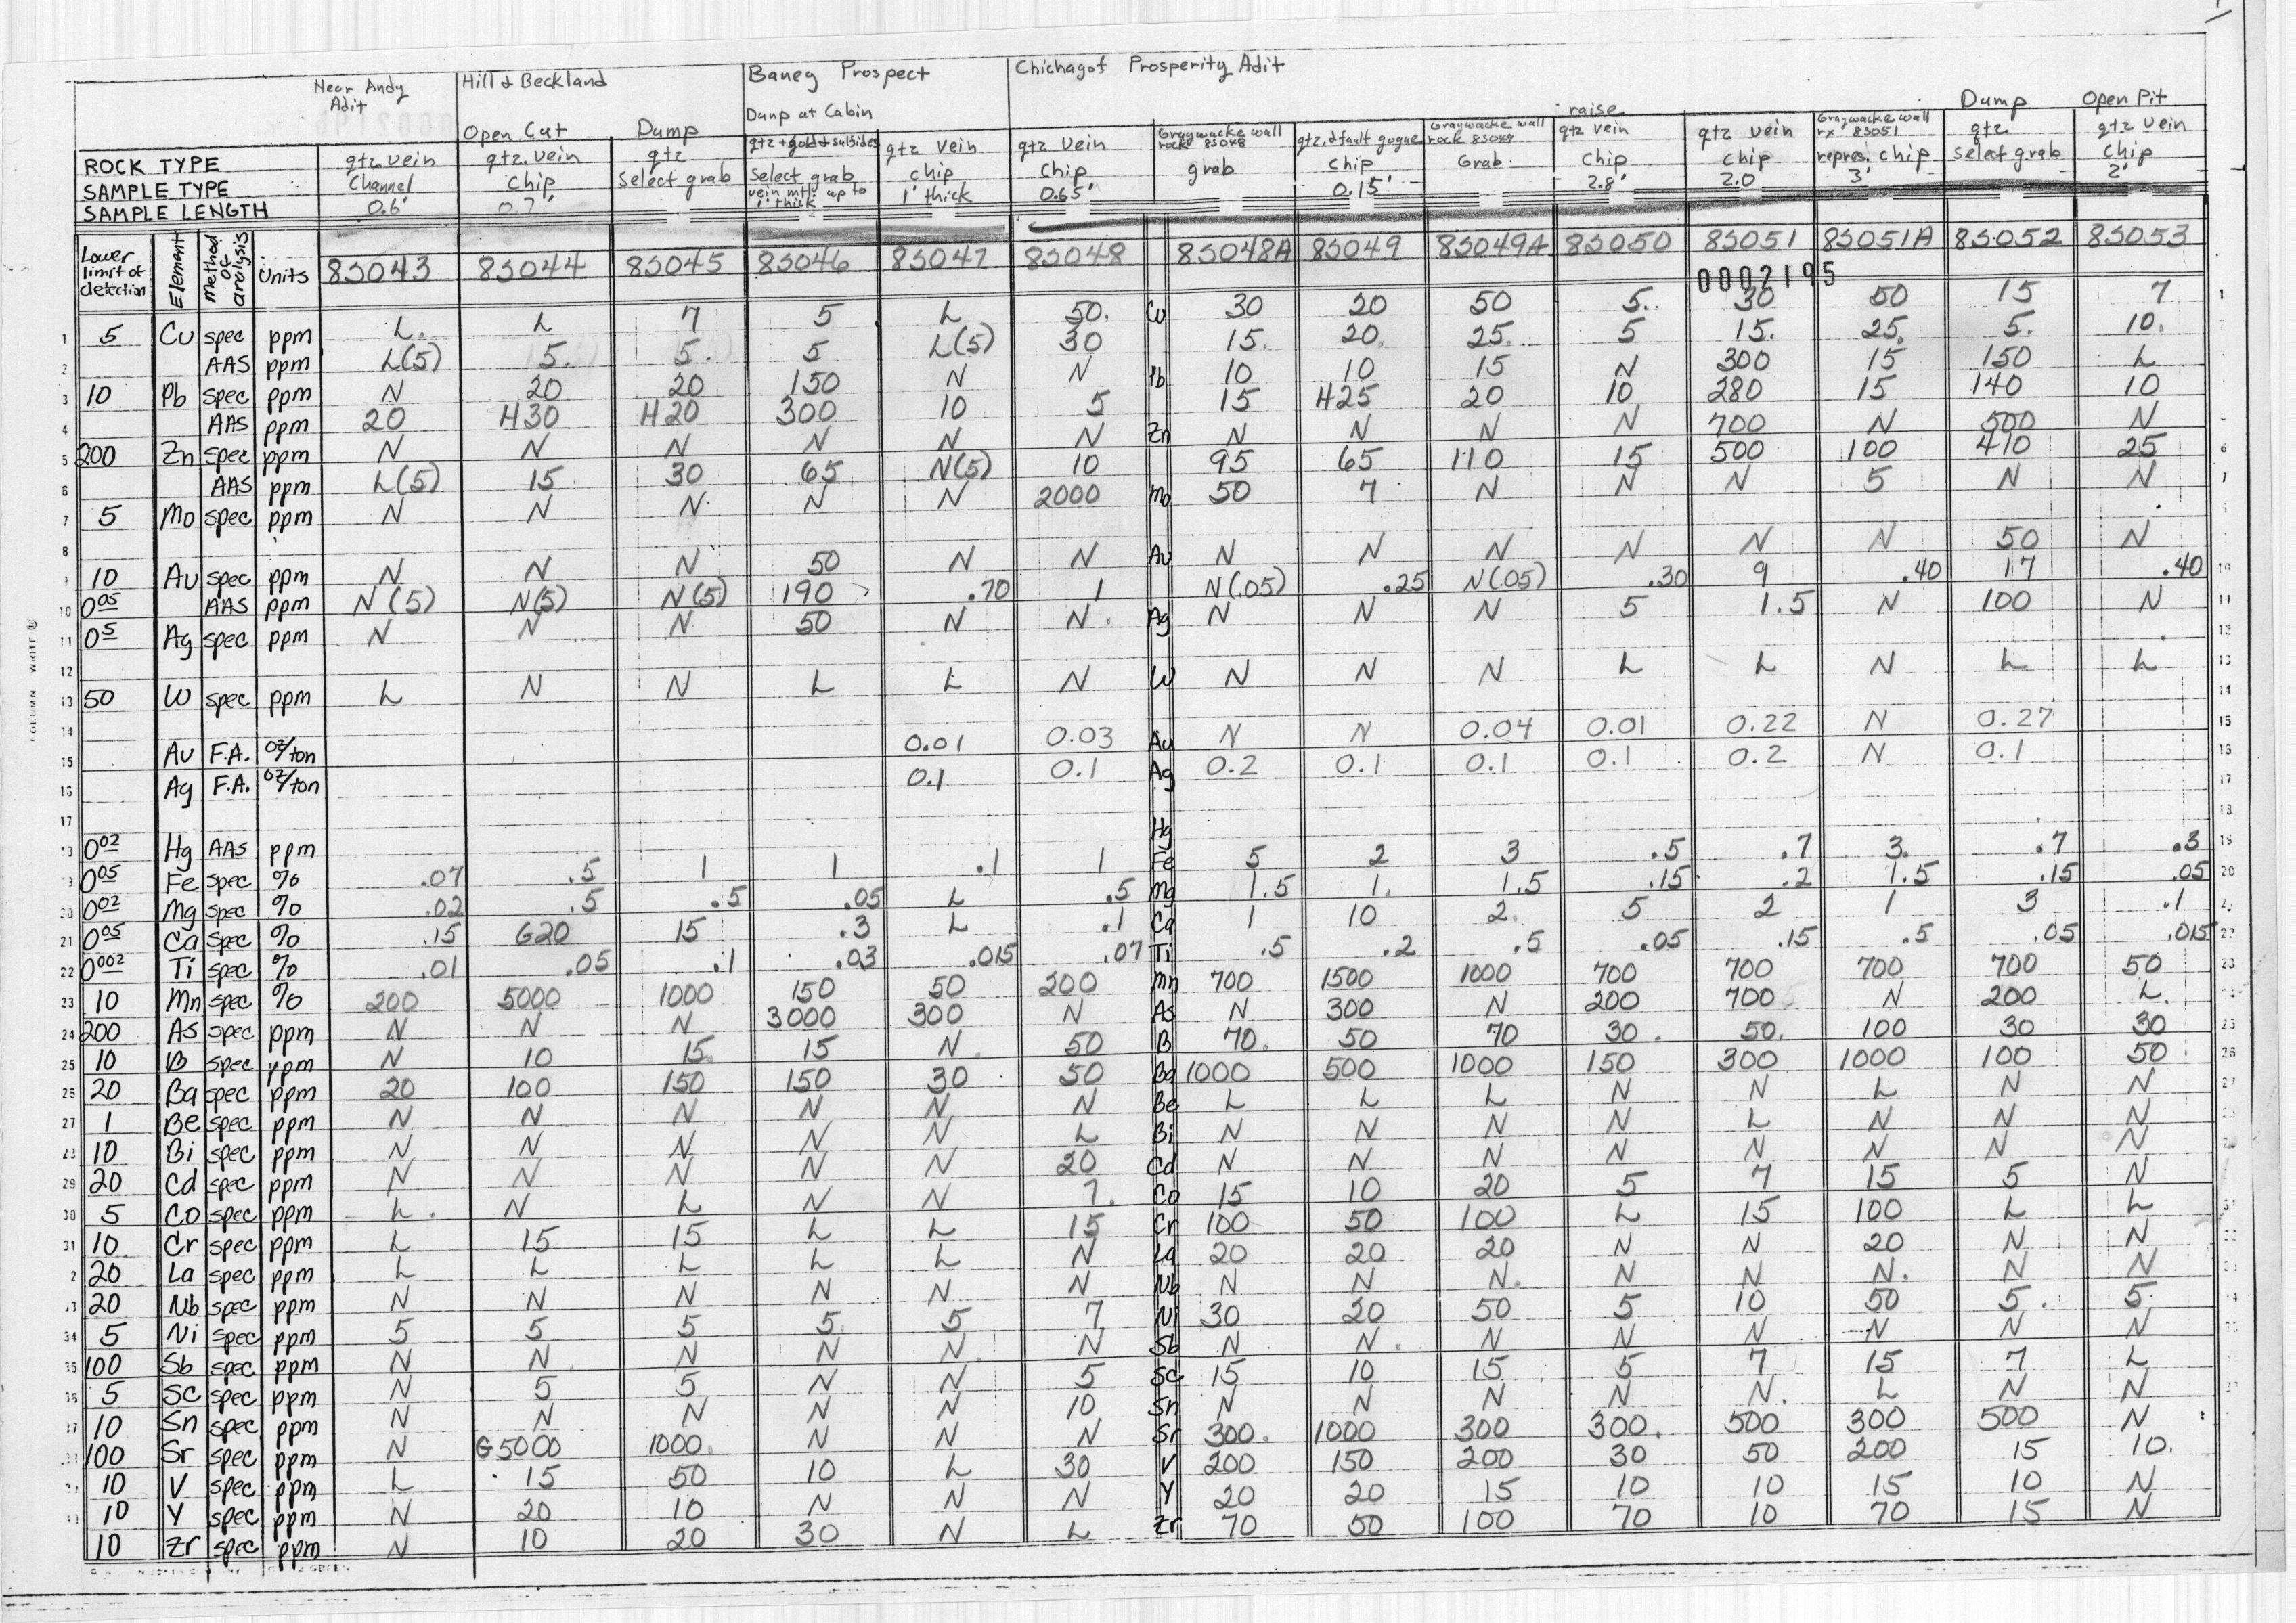 Near Andy Adit | Hill & Beckland | Baney Prospect | Chichagof Prosperity Adit
Open Cut | Dump | Dump at Cabin | raise | Dump | Open Pit
ROCK TYPE | qtz vein | qtz. vein | qtz | qtz + gold + sulfides | qtz vein | qtz vein | Graywacke wall rock 8S048 | qtz. & fault gouge | Graywacke wall rock 8S049 | qtz vein | qtz vein | Graywacke wall rx. 8S051 | qtz | qtz vein
SAMPLE TYPE | Channel | Chip | Select grab | Select grab vein mtl. up to 1' thick | chip | Chip | grab | chip | Grab | Chip | chip | repres. chip | Select grab | Chip
SAMPLE LENGTH | 0.6' | 0.7' | 1' thick | 0.65' | 0.15' | 2.8' | 2.0 | 3' | 2'
Lower limit of detection | Element | Method of analysis | Units | 8S043 | 8S044 | 8S045 | 8S046 | 8S047 | 8S048 | 8S048A | 8S049 | 8S049A | 8S050 | 8S051 | 8S051A | 8S052 | 8S053
0002195
1 | 5 | Cu | spec | ppm | L | L | 7 | 5 | L | 50. | Cu | 30 | 20 | 50 | 5. | 30 | 50 | 15 | 7
2 | AAS | ppm | L(5) | 5. | 5. | 5 | L(5) | 30 | 15. | 20. | 25. | 5 | 15. | 25. | 5. | 10.
3 | 10 | Pb | spec | ppm | N | 20 | 20 | 150 | N | N | Pb | 10 | 10 | 15 | N | 300 | 15 | 150 | L
4 | AAS | ppm | 20 | H30 | H20 | 300 | 10 | 5 | 15 | H25 | 20 | 10 | 280 | 15 | 140 | 10
5 | 200 | Zn | spec | ppm | N | N | N | N | N | N | Zn | N | N | N | N | 700 | N | 500 | N
6 | AAS | ppm | L(5) | 15 | 30 | 65 | N(5) | 10 | 95 | 65 | 110 | 15 | 500 | 100 | 410 | 25
7 | 5 | Mo | spec | ppm | N | N | N | N | N | 2000 | Mo | 50 | 7 | N | N | N | 5 | N | N
8
9 | 10 | Au | spec | ppm | N | N | N | 50 | N | N | Au | N | N | N | N | N | N | 50 | N
10 | 005 | AAS | ppm | N(5) | N(5) | N(5) | 190 | .70 | 1 | N(.05) | .25 | N(.05) | .30 | 9 | .40 | 17 | .40
11 | 05 | Ag | spec | ppm | N | N | N | 50 | N | N | Ag | N | N | N | 5 | 1.5 | N | 100 | N
12
13 | 50 | W | spec | ppm | L | N | N | L | L | N | W | N | N | N | L | L | N | L | L
14
15 | Au | F.A. | oz/ton | 0.01 | 0.03 | Au | N | N | 0.04 | 0.01 | 0.22 | N | 0.27
16 | Ag | F.A. | oz/ton | 0.1 | 0.1 | Ag | 0.2 | 0.1 | 0.1 | 0.1 | 0.2 | N | 0.1
17
002 | Hg | AAS | ppm | Hg
005 | Fe | spec | % | .07 | .5 | 1 | 1 | .1 | 1 | Fe | 5 | 2 | 3 | .5 | .7 | 3. | .7 | .3
20 | 002 | Mg | spec | % | .02 | .5 | .5 | .05 | L | .5 | Mg | 1.5 | 1. | 1.5 | .15 | .2 | 1.5 | .15 | .05
21 | 005 | Ca | spec | % | .15 | G20 | 15 | .3 | L | .1 | Ca | 1 | 10 | 2. | 5 | 2 | 1 | 3 | .1
22 | 0002 | Ti | spec | % | .01 | .05 | .1 | .03 | .015 | .07 | Ti | .5 | .2 | .5 | .05 | .15 | .5 | .05 | .015
23 | 10 | Mn | spec | % | 200 | 5000 | 1000 | 150 | 50 | 200 | Mn | 700 | 1500 | 1000 | 700 | 700 | 700 | 700 | 50
24 | 200 | As | spec | ppm | N | N | N | 3000 | 300 | N | As | N | 300 | N | 200 | 700 | N | 200 | L.
25 | 10 | B | spec | ppm | N | 10 | 15. | 15 | N | 50 | B | 70. | 50 | 70 | 30. | 50. | 100 | 30 | 30
20 | Ba | spec | ppm | 20 | 100 | 150 | 150 | 30 | 50 | Ba | 1000 | 500 | 1000 | 150 | 300 | 1000 | 100 | 50
27 | 1 | Be | spec | ppm | N | N | N | N | N | N | Be | L | L | L | N | N | L | N | N
10 | Bi | spec | ppm | N | N | N | N | N | L | Bi | N | N | N | N | L | N | N | N
29 | 20 | Cd | spec | ppm | N | N | N | N | N | 20 | Cd | N | N | N | N | N | N | N | N
30 | 5 | Co | spec | ppm | L. | N | L | N | N | 7. | Co | 15 | 10 | 20 | 5 | 7 | 15 | 5 | N
31 | 10 | Cr | spec | ppm | L | 15 | 15 | L | L | 15 | Cr | 100 | 50 | 100 | L | 15 | 100 | L | L
20 | La | spec | ppm | L | L | L | L | L | N | La | 20 | 20 | 20 | N | N | 20 | N | N
20 | Nb | spec | ppm | N | N | N | N | N | N | Nb | N | N | N. | N | N | N. | N | N
34 | 5 | Ni | spec | ppm | 5 | 5 | 5 | 5 | 5 | 7 | Ni | 30 | 20 | 50 | 5 | 10 | 50 | 5. | 5
35 | 100 | Sb | spec | ppm | N | N | N | N | N | N | Sb | N | N. | N | N | N | N | N | N
5 | Sc | spec | ppm | N | 5 | 5 | N | N | 5 | Sc | 15 | 10 | 15 | 5 | 7 | 15 | 7 | L
10 | Sn | spec | ppm | N | N | N | N | N | 10 | Sn | N | N | N | N | N. | L | N | N
100 | Sr | spec | ppm | N | G5000 | 1000. | N | N | N | Sr | 300. | 1000 | 300 | 300. | 500 | 300 | 500 | N
10 | V | spec | ppm | L | 15 | 50 | 10 | L | 30 | V | 200 | 150 | 200 | 30 | 50 | 200 | 15 | 10.
10 | Y | spec | ppm | N | 20 | 10 | N | N | N | Y | 20 | 20 | 15 | 10 | 10 | 15 | 10 | N
10 | Zr | spec | ppm | N | 10 | 20 | 30 | N | L | Zr | 70 | 50 | 100 | 70 | 10 | 70 | 15 | N
COLUMN WRITE